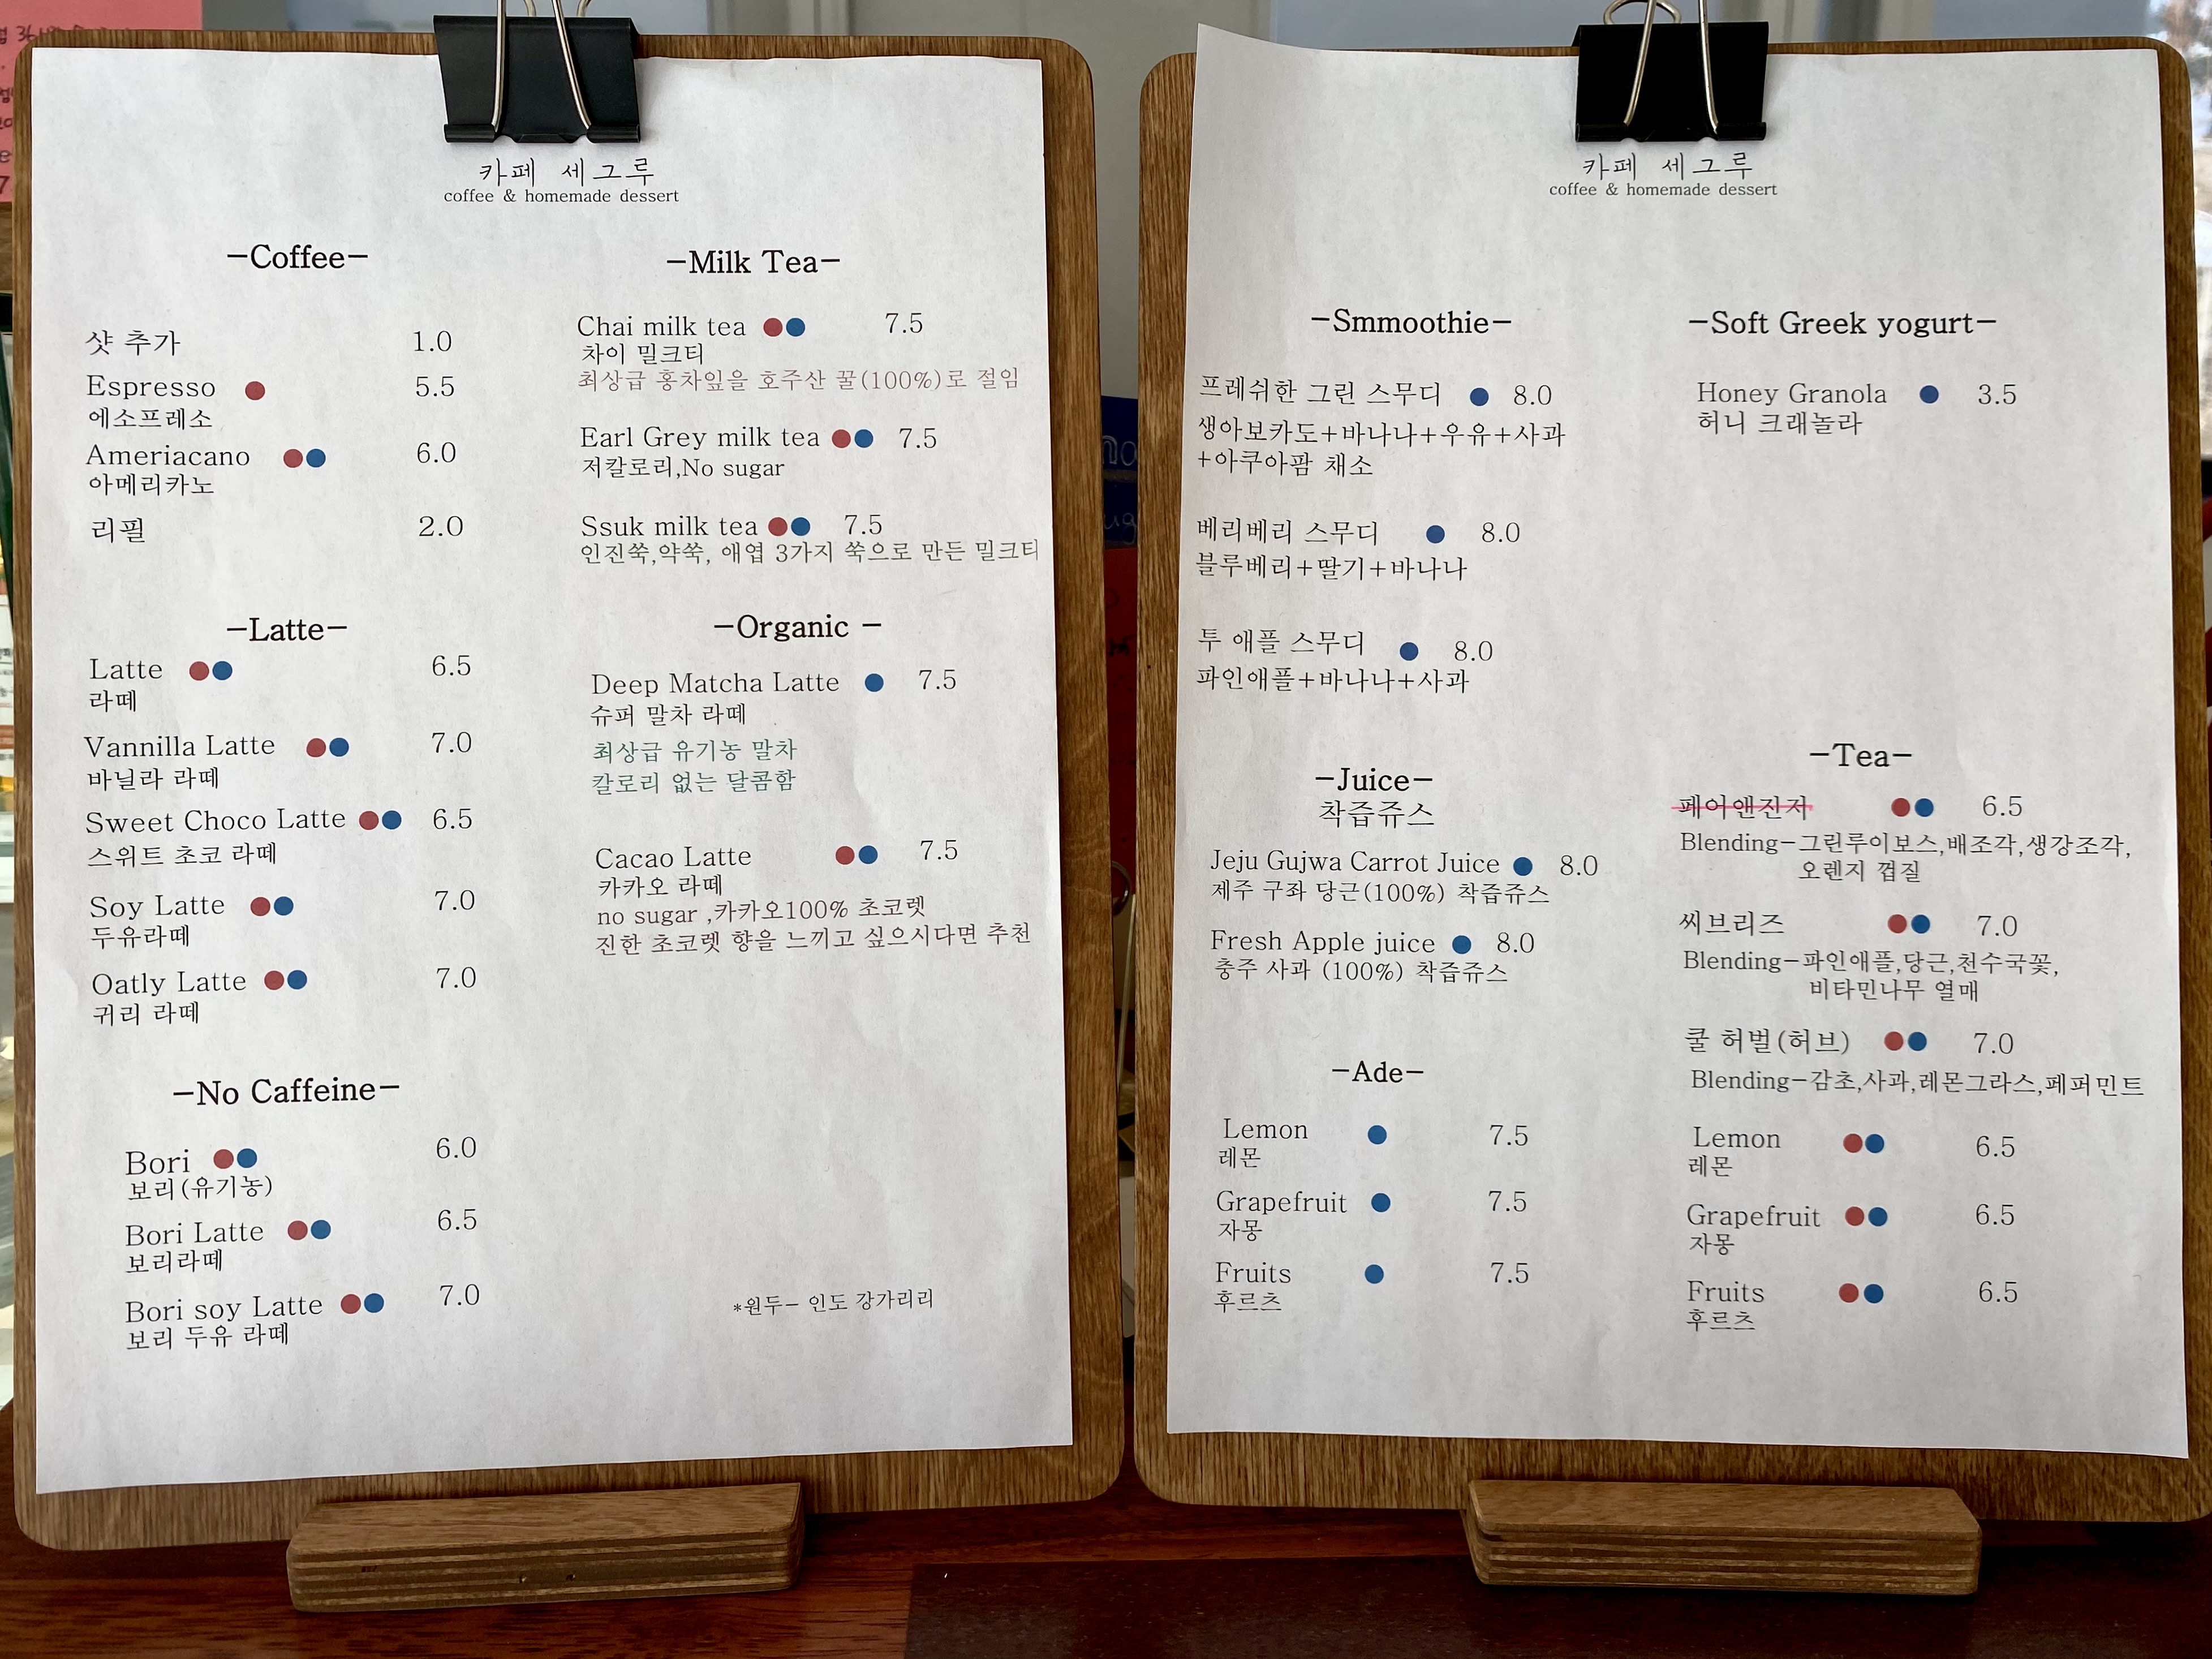 카페 세그루
coffee & homemade dessert
-Coffee-
샷 추가 1.0
Espresso 5.5
에소프레소
Ameriacano 6.0
아메리카노
리필 2.0
-Latte-
Latte 6.5
라떼
Vannilla Latte 7.0
바닐라 라떼
Sweet Choco Latte 6.5
스위트 초코 라떼
Soy Latte 7.0
두유라떼
Oatly Latte 7.0
귀리 라떼
-No Caffeine-
Bori 6.0
보리(유기농)
Bori Latte 6.5
보리라떼
Bori soy Latte 7.0
보리 두유 라떼
-Milk Tea-
Chai milk tea 7.5
차이 밀크티
최상급 홍차잎을 호주산 꿀(100%)로 절임
Earl Grey milk tea 7.5
저칼로리,No sugar
Ssuk milk tea 7.5
인진쑥,약쑥, 애엽 3가지 쑥으로 만든 밀크티
-Organic -
Deep Matcha Latte 7.5
슈퍼 말차 라떼
최상급 유기농 말차
칼로리 없는 달콤함
Cacao Latte 7.5
카카오 라떼
no sugar ,카카오100% 초코렛
진한 초코렛 향을 느끼고 싶으시다면 추천
*원두- 인도 강가리리
카페 세그루
coffee & homemade dessert
-Smmoothie-
프레쉬한 그린 스무디 8.0
생아보카도+바나나+우유+사과
+아쿠아팜 채소
베리베리 스무디 8.0
블루베리+딸기+바나나
투 애플 스무디 8.0
파인애플+바나나+사과
-Juice-
착즙쥬스
Jeju Gujwa Carrot Juice 8.0
제주 구좌 당근(100%) 착즙쥬스
Fresh Apple juice 8.0
충주 사과 (100%) 착즙쥬스
-Ade-
Lemon 7.5
레몬
Grapefruit 7.5
자몽
Fruits 7.5
후르츠
-Soft Greek yogurt-
Honey Granola 3.5
허니 크래놀라
-Tea-
페어앤진저 6.5
Blending-그린루이보스,배조각,생강조각,
오렌지 껍질
씨브리즈 7.0
Blending-파인애플,당근,천수국꽃,
비타민나무 열매
쿨 허벌(허브) 7.0
Blending-감초,사과,레몬그라스,페퍼민트
Lemon 6.5
레몬
Grapefruit 6.5
자몽
Fruits 6.5
후르츠